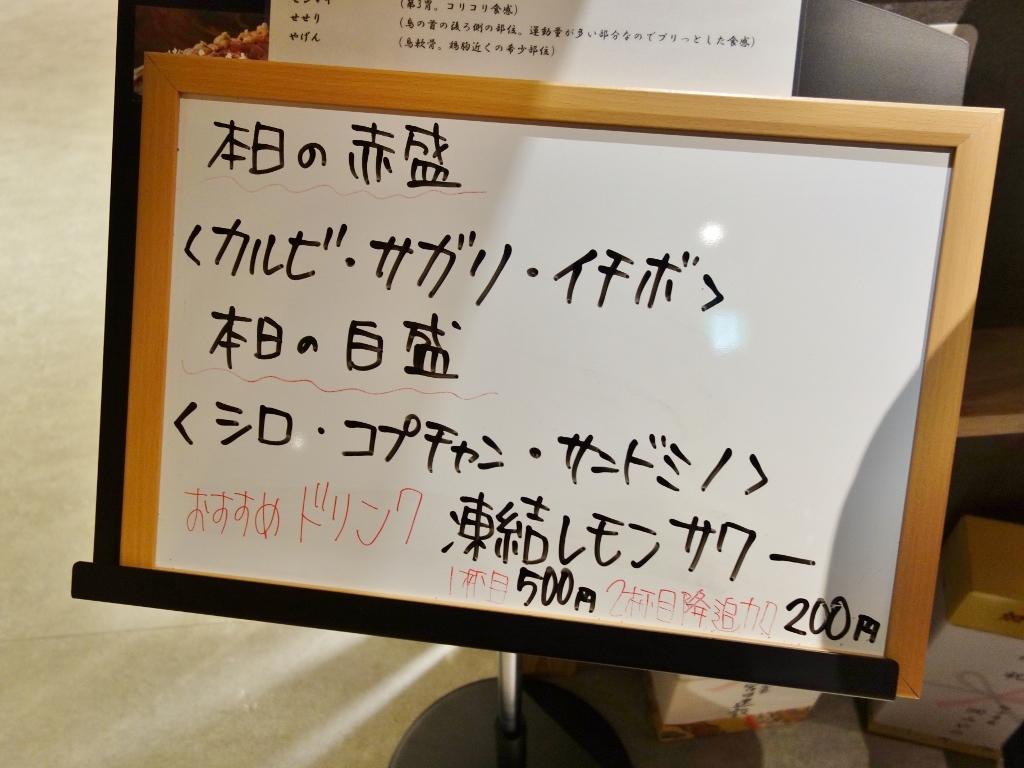 せせり (鳥の首の後ろ側の部位。運動量が多い部分なのでプリっとした食感)
やげん (鳥軟骨。鶏胸近くの希少部位)
本日の赤盛
<カルビ・サガリ・イチボ>
本日の白盛
<シロ・コプチャン・サンドミノ>
おすすめドリンク 凍結レモンサワー
1杯目500円 2杯目降追加 200円